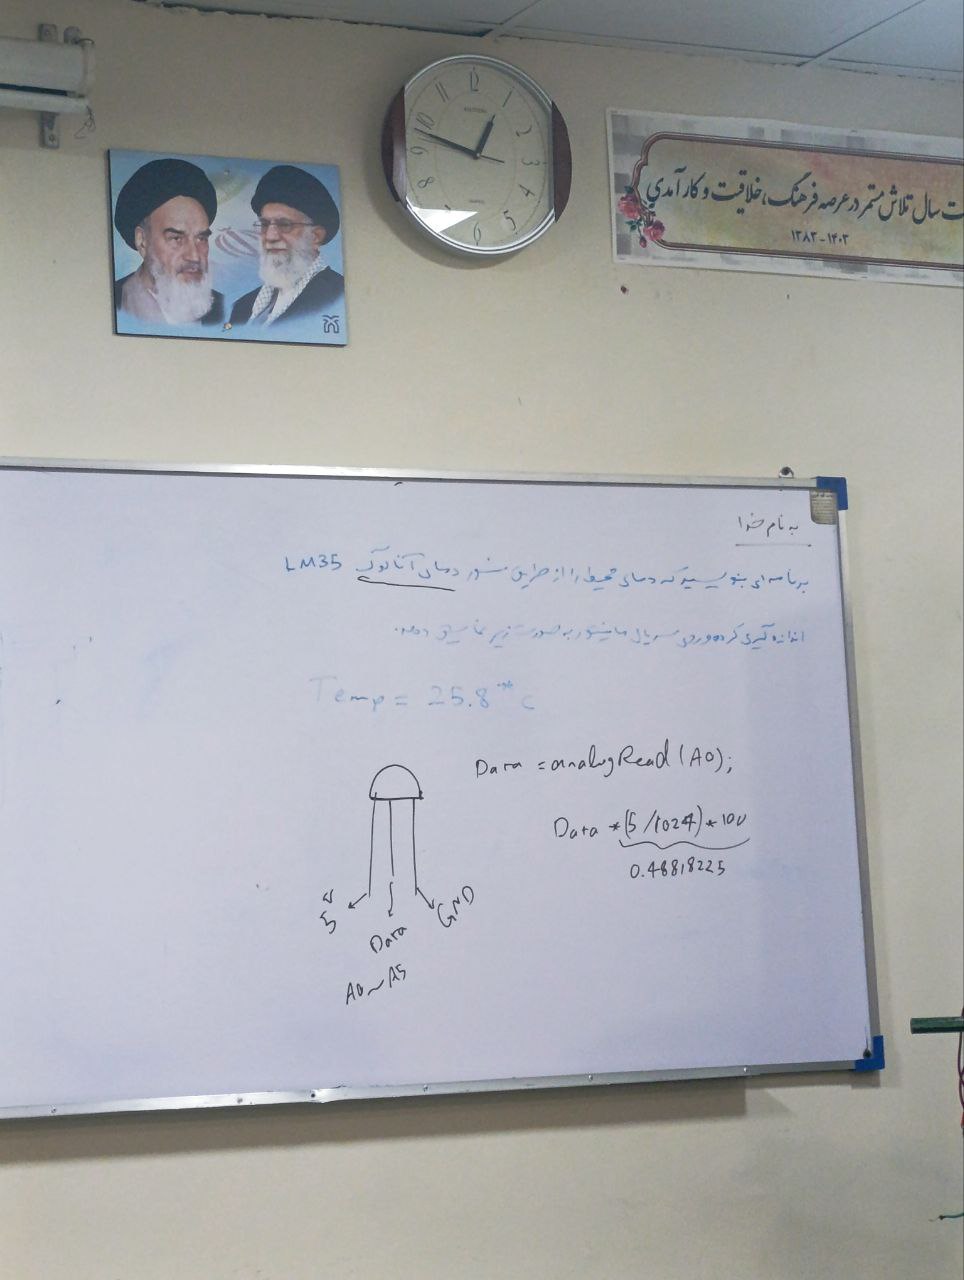 12
1
2
3
4
5
6
7
8
9
10
11
ت سال تلاش مستمر در عرصه فرهنگ، خلاقیت و کارآمدی
۱۳۸۳-۱۴۰۳
به نام خدا
برنامه‌ای بنویسید که دمای محیط را از طریق سنسور دمای آنالوگ LM35
اندازه‌گیری کرده و روی سریال مانیتور به صورت زیر نمایش دهد.
Temp = 25.8 °C
Data = analogRead (A0);
Data * (5/1024) * 100
0.48818225
5v
Data
GND
A0~A5